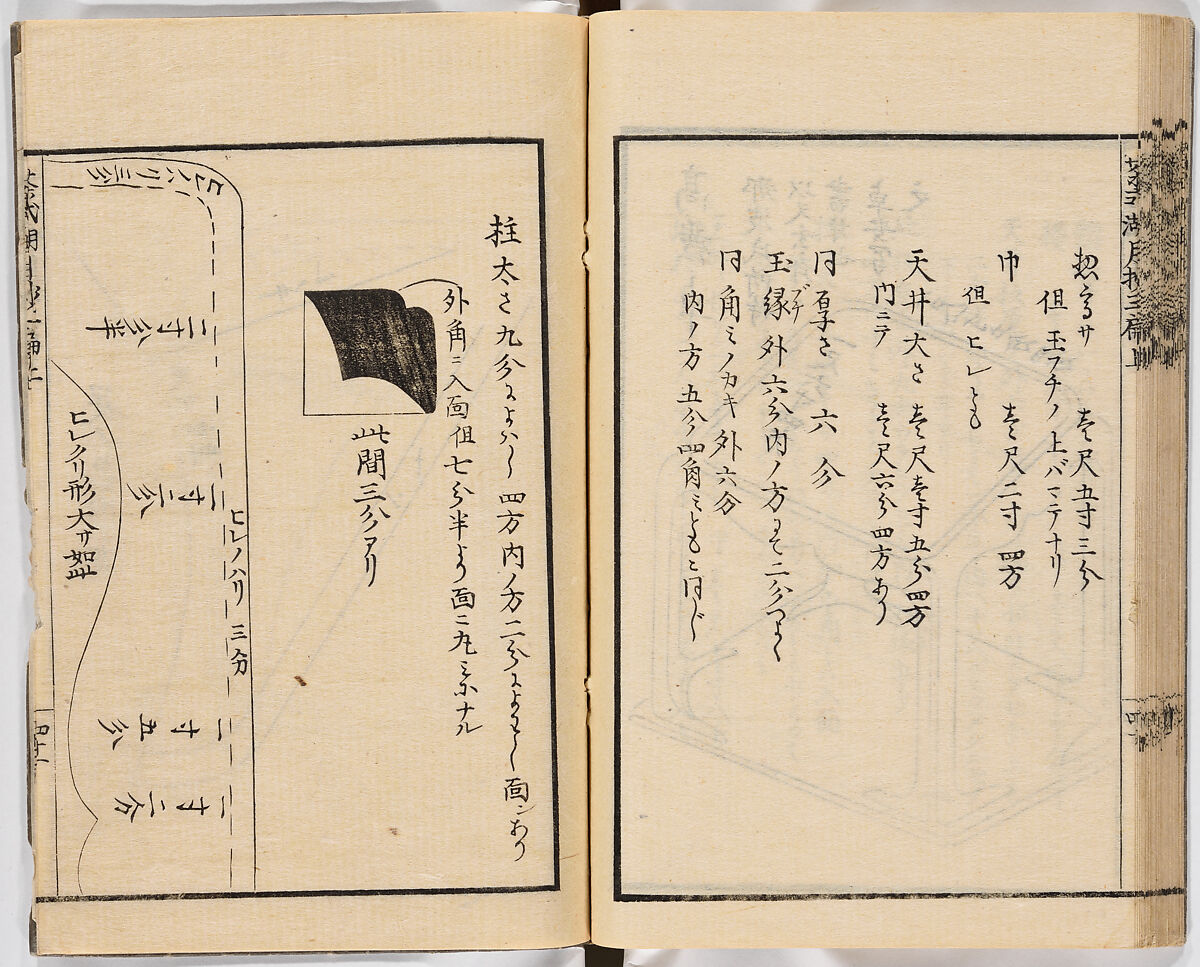 惣高サ 壱尺五寸三分
但 玉フチノ上バマテナリ
巾 壱尺二寸 四方
但 ヒレとも
天井大さ 壱尺壱寸五分四方
内ニテ 壱尺六分四方あり
同厚さ 六分
玉縁 外六分内ノ方にて二分つよく
ブチ
同角ミノカキ外六分
内ノ方五分四角ミともに同じ
柱太さ九分によハし四方内ノ方二分によわし面ンあり
外角ニ入面但七分半より面ニ九ミ
ナル
此間三分アリ
ヒレノハリ三分
二寸八分半
一寸三分
ヒレノハリ 三分
二寸五分
一寸二分
ヒレクリ形大サ如此